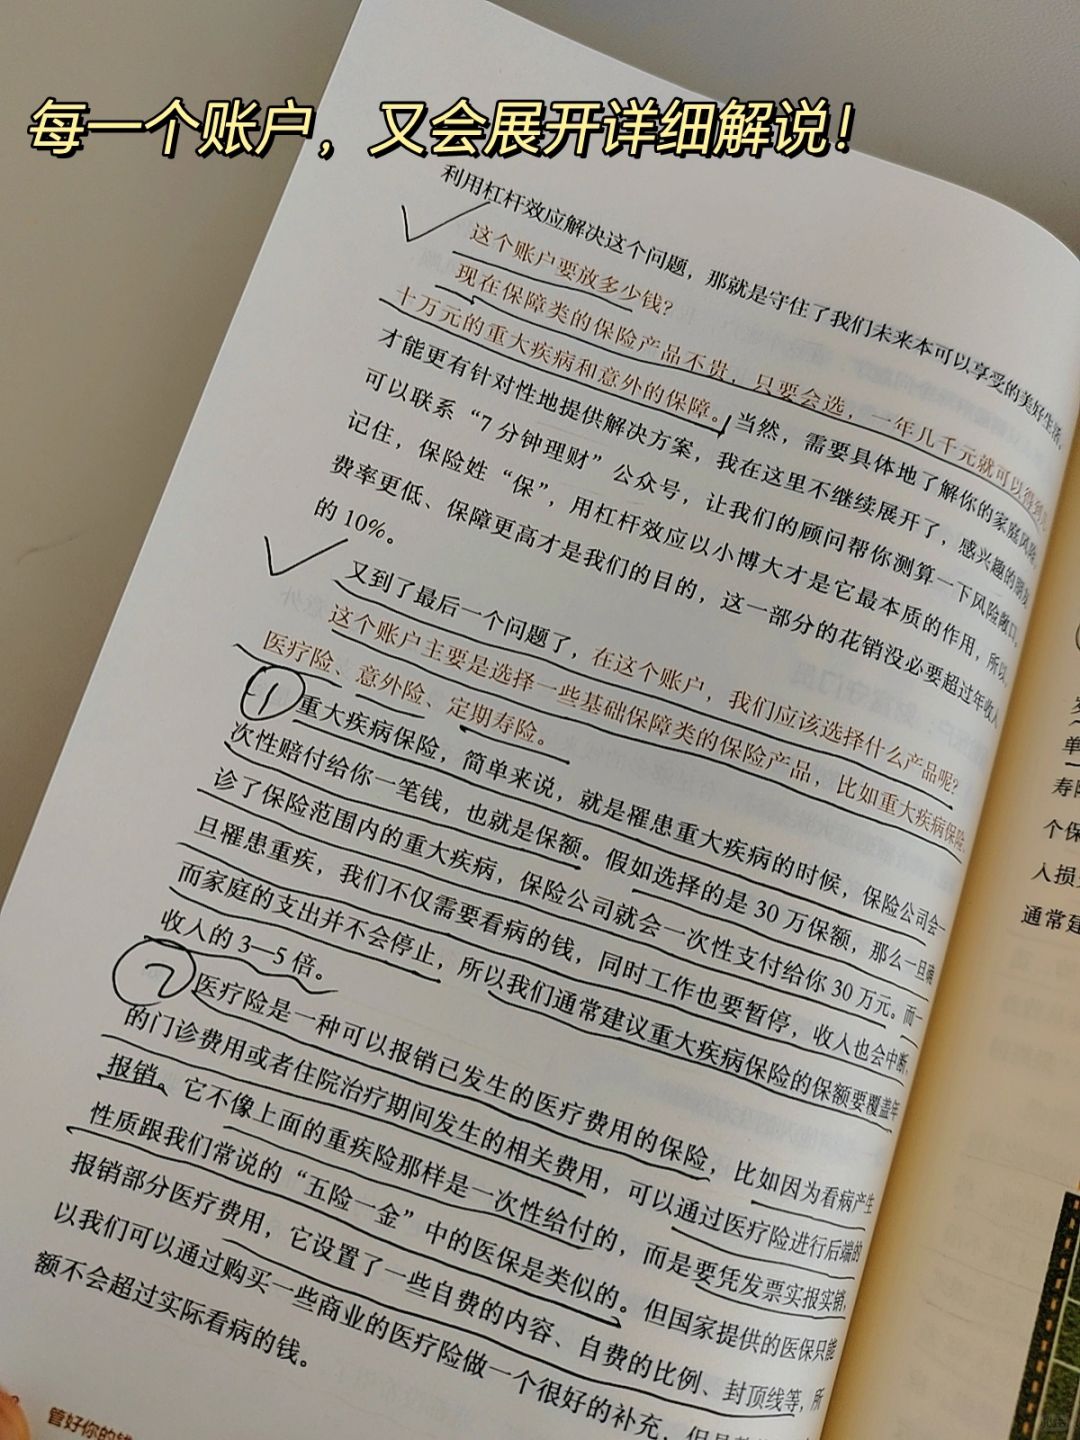 每一个账户，又会展开详细解说！
利用杠杆效应解决这个问题，那就是守住了我们未来本可以享受的美好生活。
这个账户要放多少钱？
现在保障类的保险产品不贵，只要会选，一年几千元就可以得到几
十万元的重大疾病和意外的保障。当然，需要具体地了解你的家庭风险，
才能更有针对性地提供解决方案，我在这里不继续展开了，感兴趣的朋友
可以联系“7分钟理财”公众号，让我们的顾问帮你测算一下风险敞口，
记住，保险姓“保”，用杠杆效应以小博大才是它最本质的作用，所以，
费率更低、保障更高才是我们的目的，这一部分的花销没必要超过年收入
的10%。
又到了最后一个问题了，在这个账户，我们应该选择什么产品呢？
这个账户主要是选择一些基础保障类的保险产品，比如重大疾病保险、
医疗险、意外险、定期寿险。
① 重大疾病保险，简单来说，就是罹患重大疾病的时候，保险公司会一
次性赔付给你一笔钱，也就是保额。假如选择的是30万保额，那么一旦确
诊了保险范围内的重大疾病，保险公司就会一次性支付给你30万元。而一
旦罹患重疾，我们不仅需要看病的钱，同时工作也要暂停，收入也会中断，
而家庭的支出并不会停止，所以我们通常建议重大疾病保险的保额要覆盖年
收入的3—5倍。
② 医疗险是一种可以报销已发生的医疗费用的保险，比如因为看病产生
的门诊费用或者住院治疗期间发生的相关费用，可以通过医疗险进行后端的
报销。它不像上面的重疾险那样是一次性给付的，而是要凭发票实报实销，
性质跟我们常说的“五险一金”中的医保是类似的。但国家提供的医保只能
报销部分医疗费用，它设置了一些自费的内容、自费的比例、封顶线等，所
以我们可以通过购买一些商业的医疗险做一个很好的补充，但是
额不会超过实际看病的钱。
管好你的钱
单
寿险
个保
人损
通常建